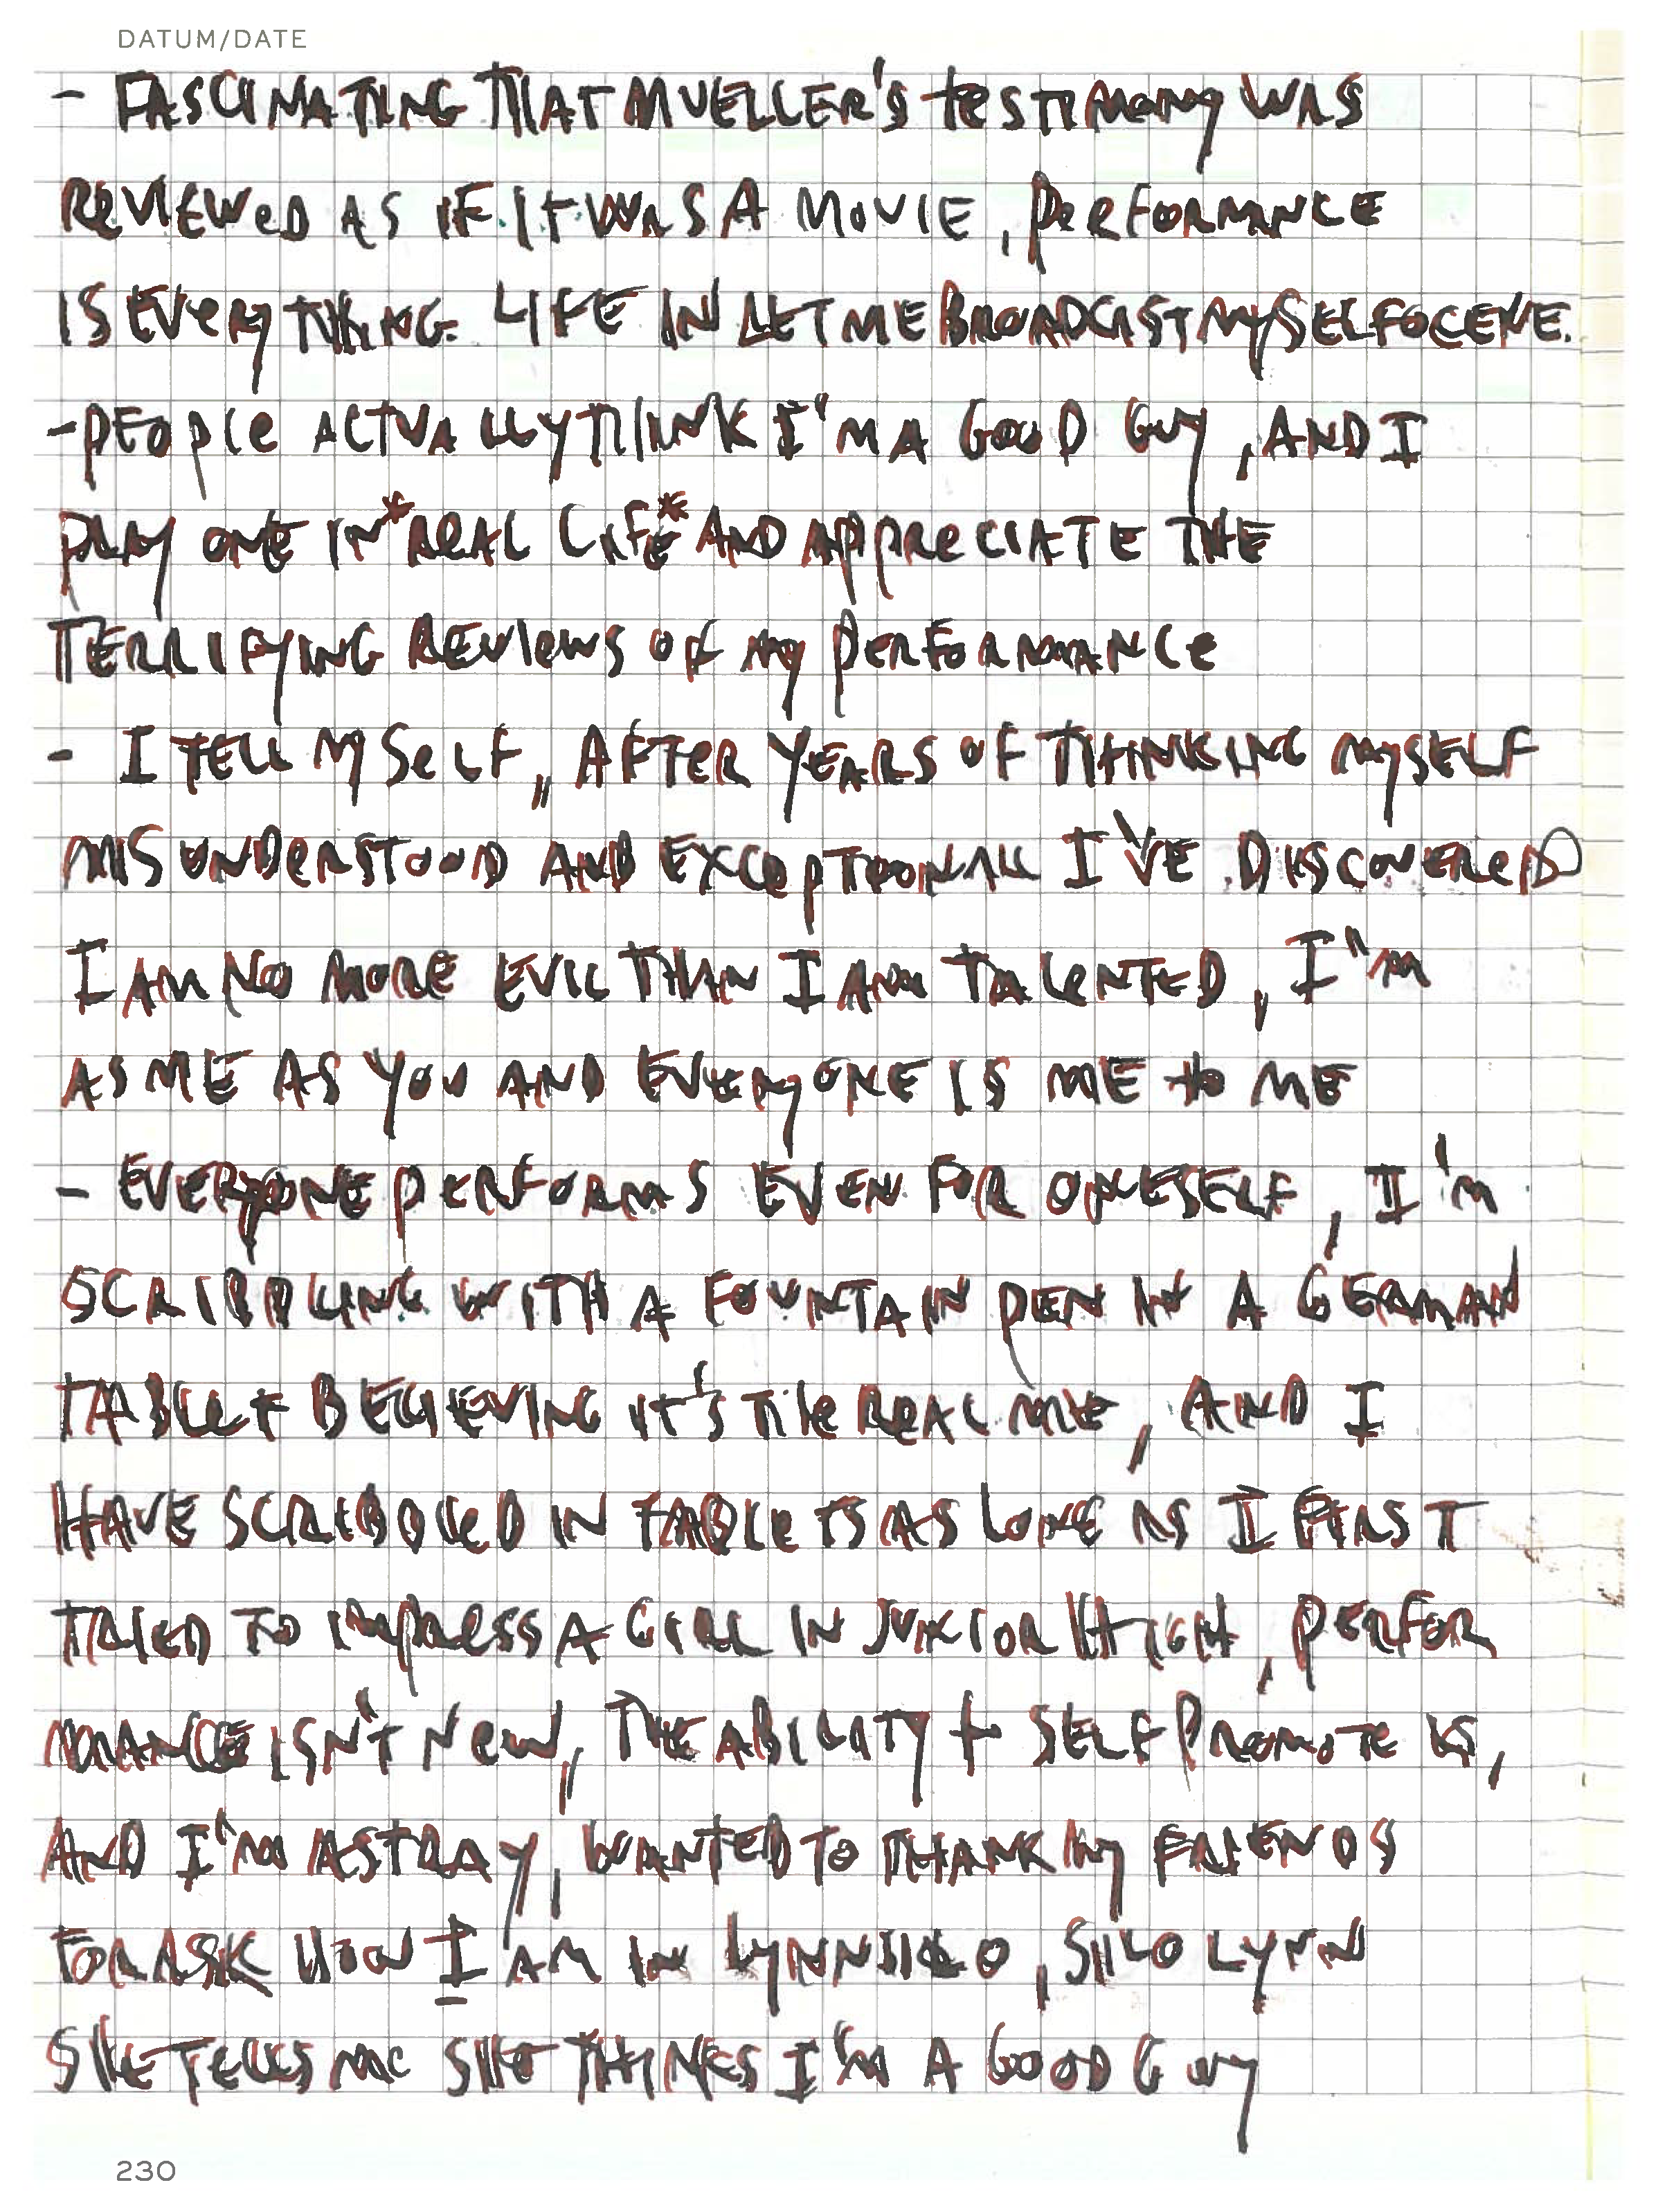 DATUM/DATE
- FASCINATING THAT MUELLER'S TESTIMONY WAS
REVIEWED AS IF IT WAS A MOVIE, PERFORMANCE
IS EVERYTHING. LIFE IN LETMEBROADCASTMYSELFOCENE.
- PEOPLE ACTUALLY THINK I'M A GOOD GUY, AND I
PLAY ONE IN *REAL LIFE* AND APPRECIATE THE
TERRIFYING REVIEWS OF MY PERFORMANCE
- I TELL MYSELF, AFTER YEARS OF THINKING MYSELF
MISUNDERSTOOD AND EXCEPTIONAL I'VE DISCOVERED
I AM NO MORE EVIL THAN I AM TALENTED, I'M
AS ME AS YOU AND EVERYONE IS ME TO ME
- EVERYONE PERFORMS EVEN FOR ONESELF, I'M
SCRIBBLING WITH A FOUNTAIN PEN IN A GERMAN
TABLET BELIEVING IT'S THE REAL ME, AND I
HAVE SCRIBBLED IN TABLETS AS LONG AS I FIRST
TRIED TO IMPRESS A GIRL IN JUNIOR HIGH, PERFOR
MANCE ISN'T NEW, THE ABILITY + SELF PROMOTE IS,
AND I'M ASTRAY, WANTED TO THANK MY FRIENDS
FOR ASK HOW I AM IN LYNNSILO, SILO LYNN
SHE TELLS ME SHE THINKS I'M A GOOD GUY
230